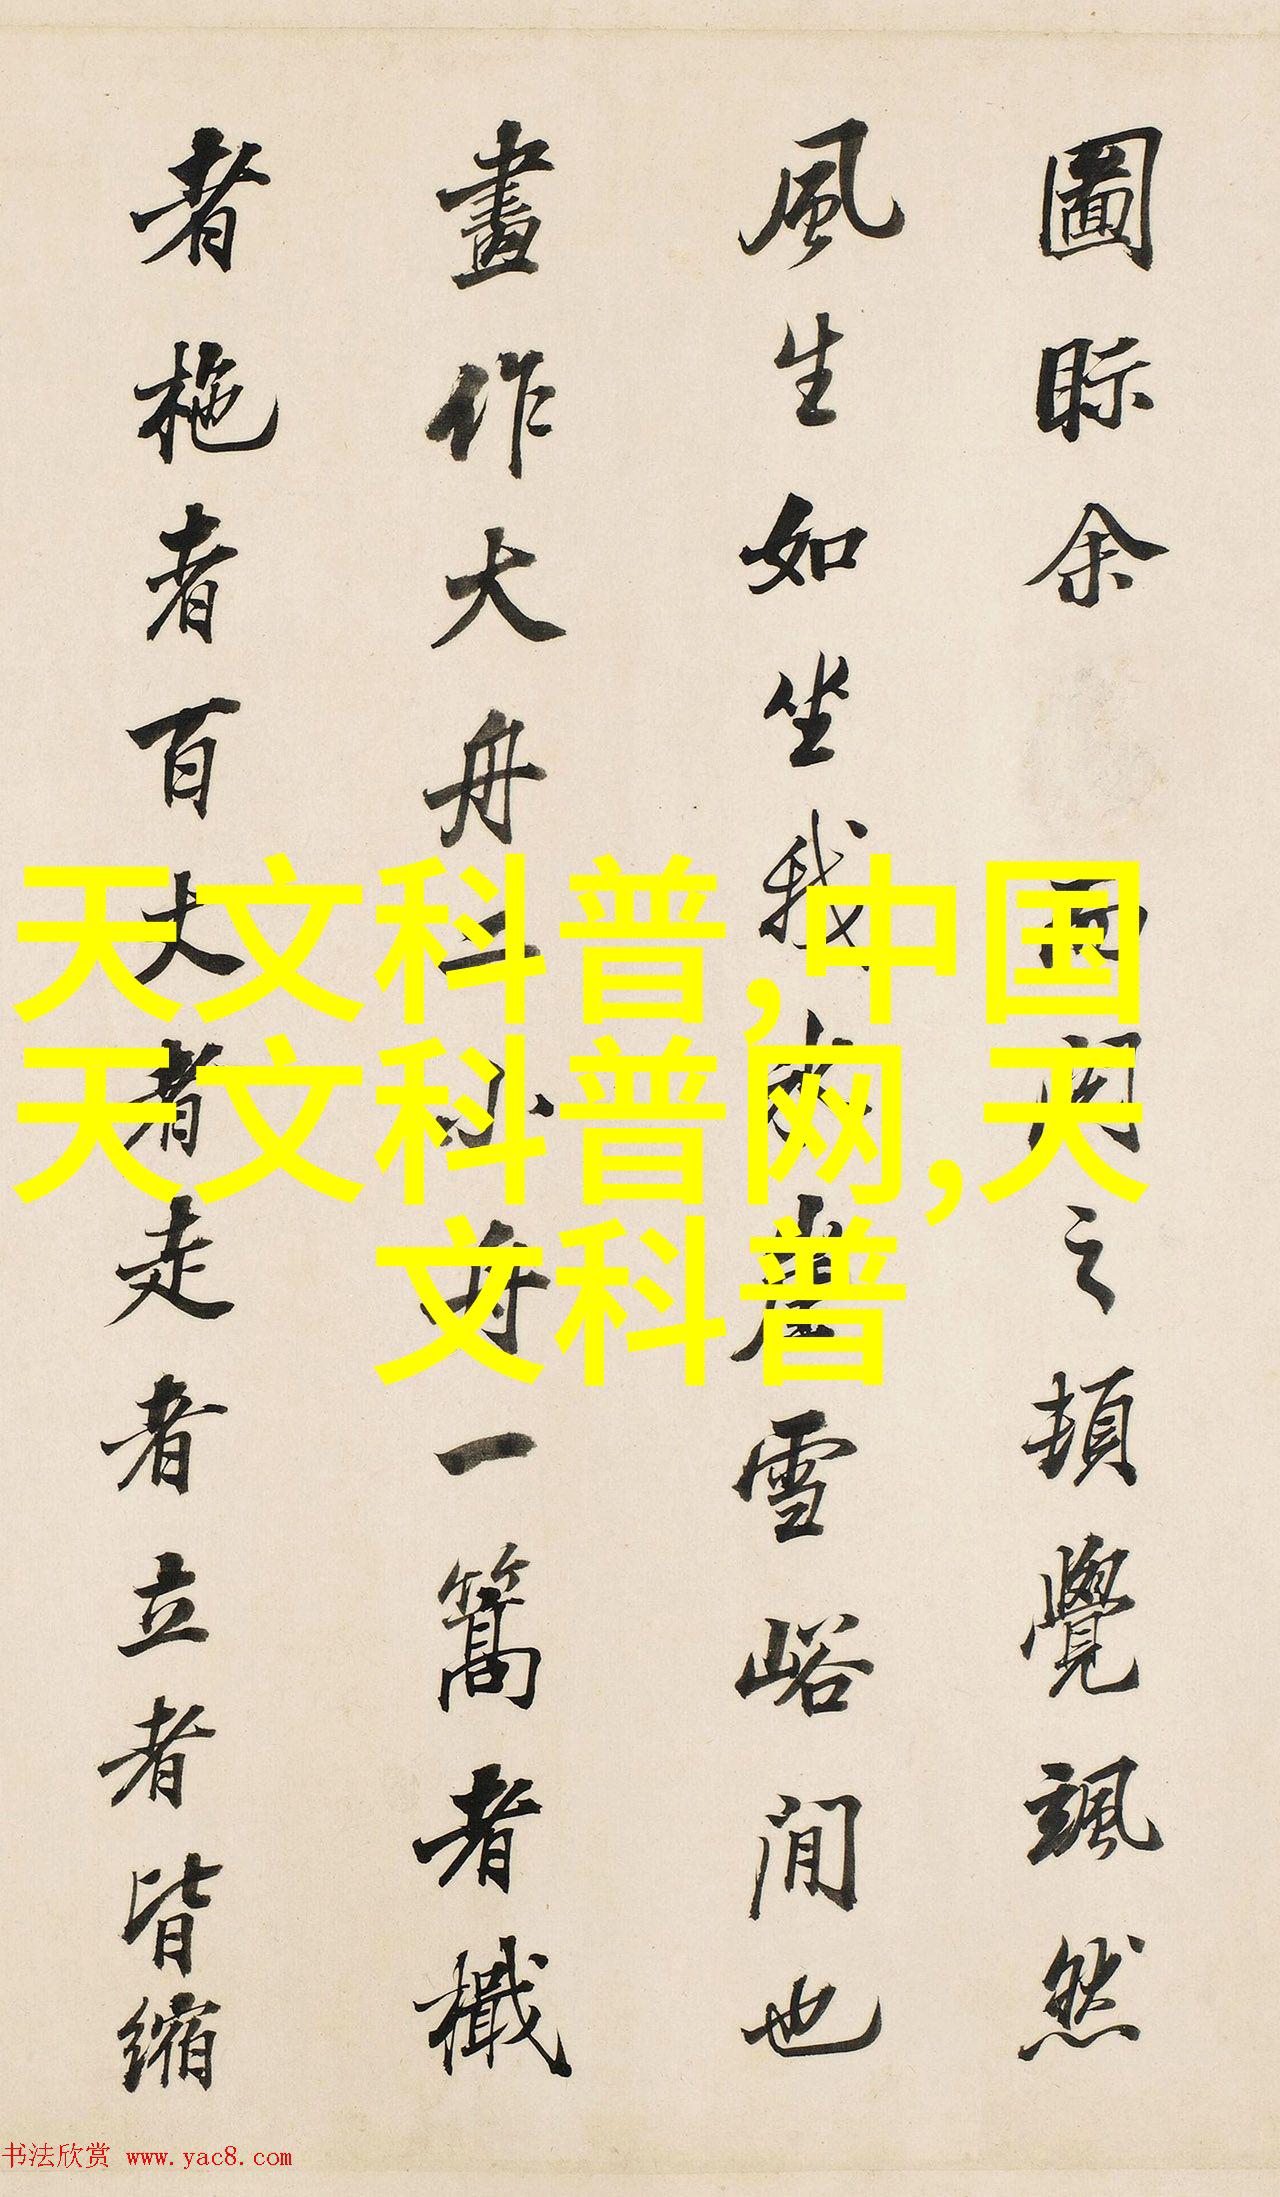 圖眎余之頓覺颯然
風生如坐我崖雪峪間也
畫作大舟二小舟一篙者
者柂者百丈者走者立者皆縮
天文科普,中国
天文科普网,天
文科普
书法欣赏 www.yac8.com